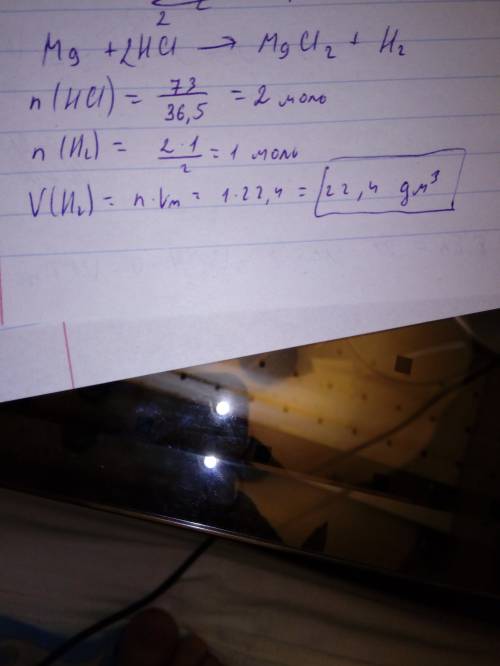 2
Mg + 2HCl → MgCl₂ + H₂
n(HCl) = 73/36,5 = 2 моль
n(H₂) = 2·1/2 = 1 моль
V(H₂) = n·Vm = 1·22,4 = 22,4 дм³